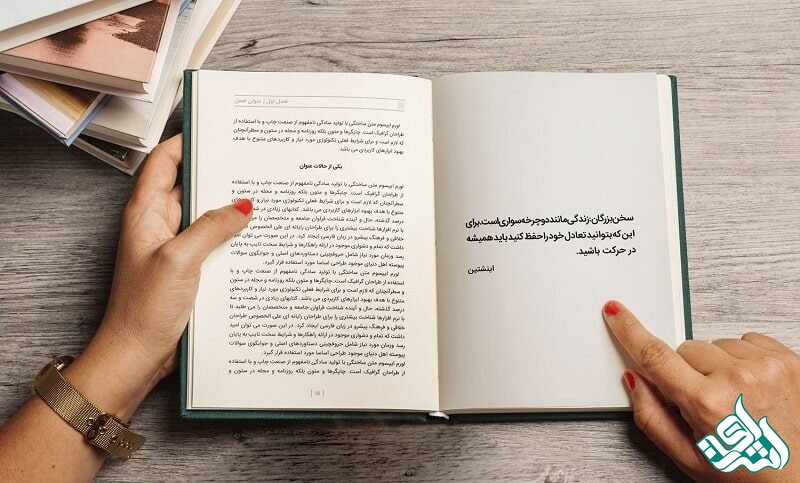 فصل اول | عنوان فصل
لورم ایپسوم متن ساختگی با تولید سادگی نامفهوم از صنعت چاپ و با استفاده از
طراحان گرافیک است. چاپگرها و متون بلکه روزنامه و مجله در ستون و سطرآنچنان
که لازم است و برای شرایط فعلی تکنولوژی مورد نیاز و کاربردهای متنوع با هدف
بهبود ابزارهای کاربردی می باشد.
یکی از حالات عنوان
لورم ایپسوم متن ساختگی با تولید سادگی نامفهوم از صنعت چاپ و با استفاده
از طراحان گرافیک است. چاپگرها و متون بلکه روزنامه و مجله در ستون و
سطرآنچنان که لازم است و برای شرایط فعلی تکنولوژی مورد نیاز و کاربردهای
متنوع با هدف بهبود ابزارهای کاربردی می باشد. کتابهای زیادی در
درصد گذشته، حال و آینده شناخت فراوان جامعه و متخصصان را می
با نرم افزارها شناخت بیشتری را برای طراحان رایانه ای علی الخصوص
خلاقی و فرهنگ پیشرو در زبان فارسی ایجاد کرد. در این صورت می توان امید
داشت که تمام و دشواری موجود در ارائه راهکارها و شرایط سخت تایپ به پایان
رسد وزمان مورد نیاز شامل حروفچینی دستاوردهای اصلی و جوابگوی سوالات
پیوسته اهل دنیای موجود طراحی اساسا مورد استفاده قرار گیرد.
لورم ایپسوم متن ساختگی با تولید سادگی نامفهوم از صنعت چاپ و با استفاده
از طراحان گرافیک است. چاپگرها و متون بلکه روزنامه و مجله در ستون
و سطرآنچنان که لازم است و برای شرایط فعلی تکنولوژی مورد نیاز و کاربردهای
متنوع با هدف بهبود ابزارهای کاربردی می باشد. کتابهای زیادی در شصت و سه
درصد گذشته، حال و آینده شناخت فراوان جامعه و متخصصان را می طلبد تا
با نرم افزارها شناخت بیشتری را برای طراحان رایانه ای علی الخصوص طراحان
خلاقی و فرهنگ پیشرو در زبان فارسی ایجاد کرد. در این صورت می توان امید
داشت که تمام و دشواری موجود در ارائه راهکارها و شرایط سخت تایپ به پایان
رسد وزمان مورد نیاز شامل حروفچینی دستاوردهای اصلی و جوابگوی سوالات
پیوسته اهل دنیای موجود طراحی اساسا مورد استفاده قرار گیرد.
لورم ایپسوم متن ساختگی با تولید سادگی نامفهوم از صنعت چاپ و با استفاده
از طراحان گرافیک است. چاپگرها و متون بلکه روزنامه و مجله در ستون و
| ۱۵ |
سخن بزرگان: زندگی مانند دوچرخه سواری است. برای
این که بتوانید تعادل خود را حفظ کنید باید همیشه
در حرکت باشید.
اینشتین